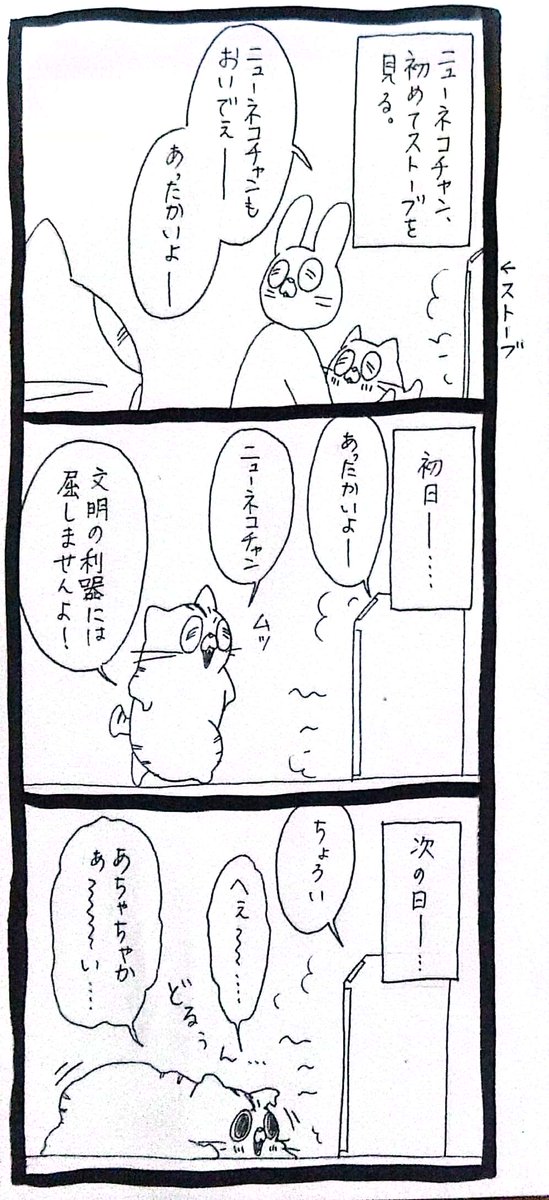 ニューネコチャン、
初めてストーブを
見る。
←ストーブ
ニューネコチャンも
おいでぇー
あったかいよー
初日ー……
あったかいよー
ニューネコチャン
ムッ
文明の利器には
屈しませんよ！
次の日ー…
ちょろい
へぇ〜〜……
どるぅん…
あちゃちゃか
ぁ〜〜〜い……